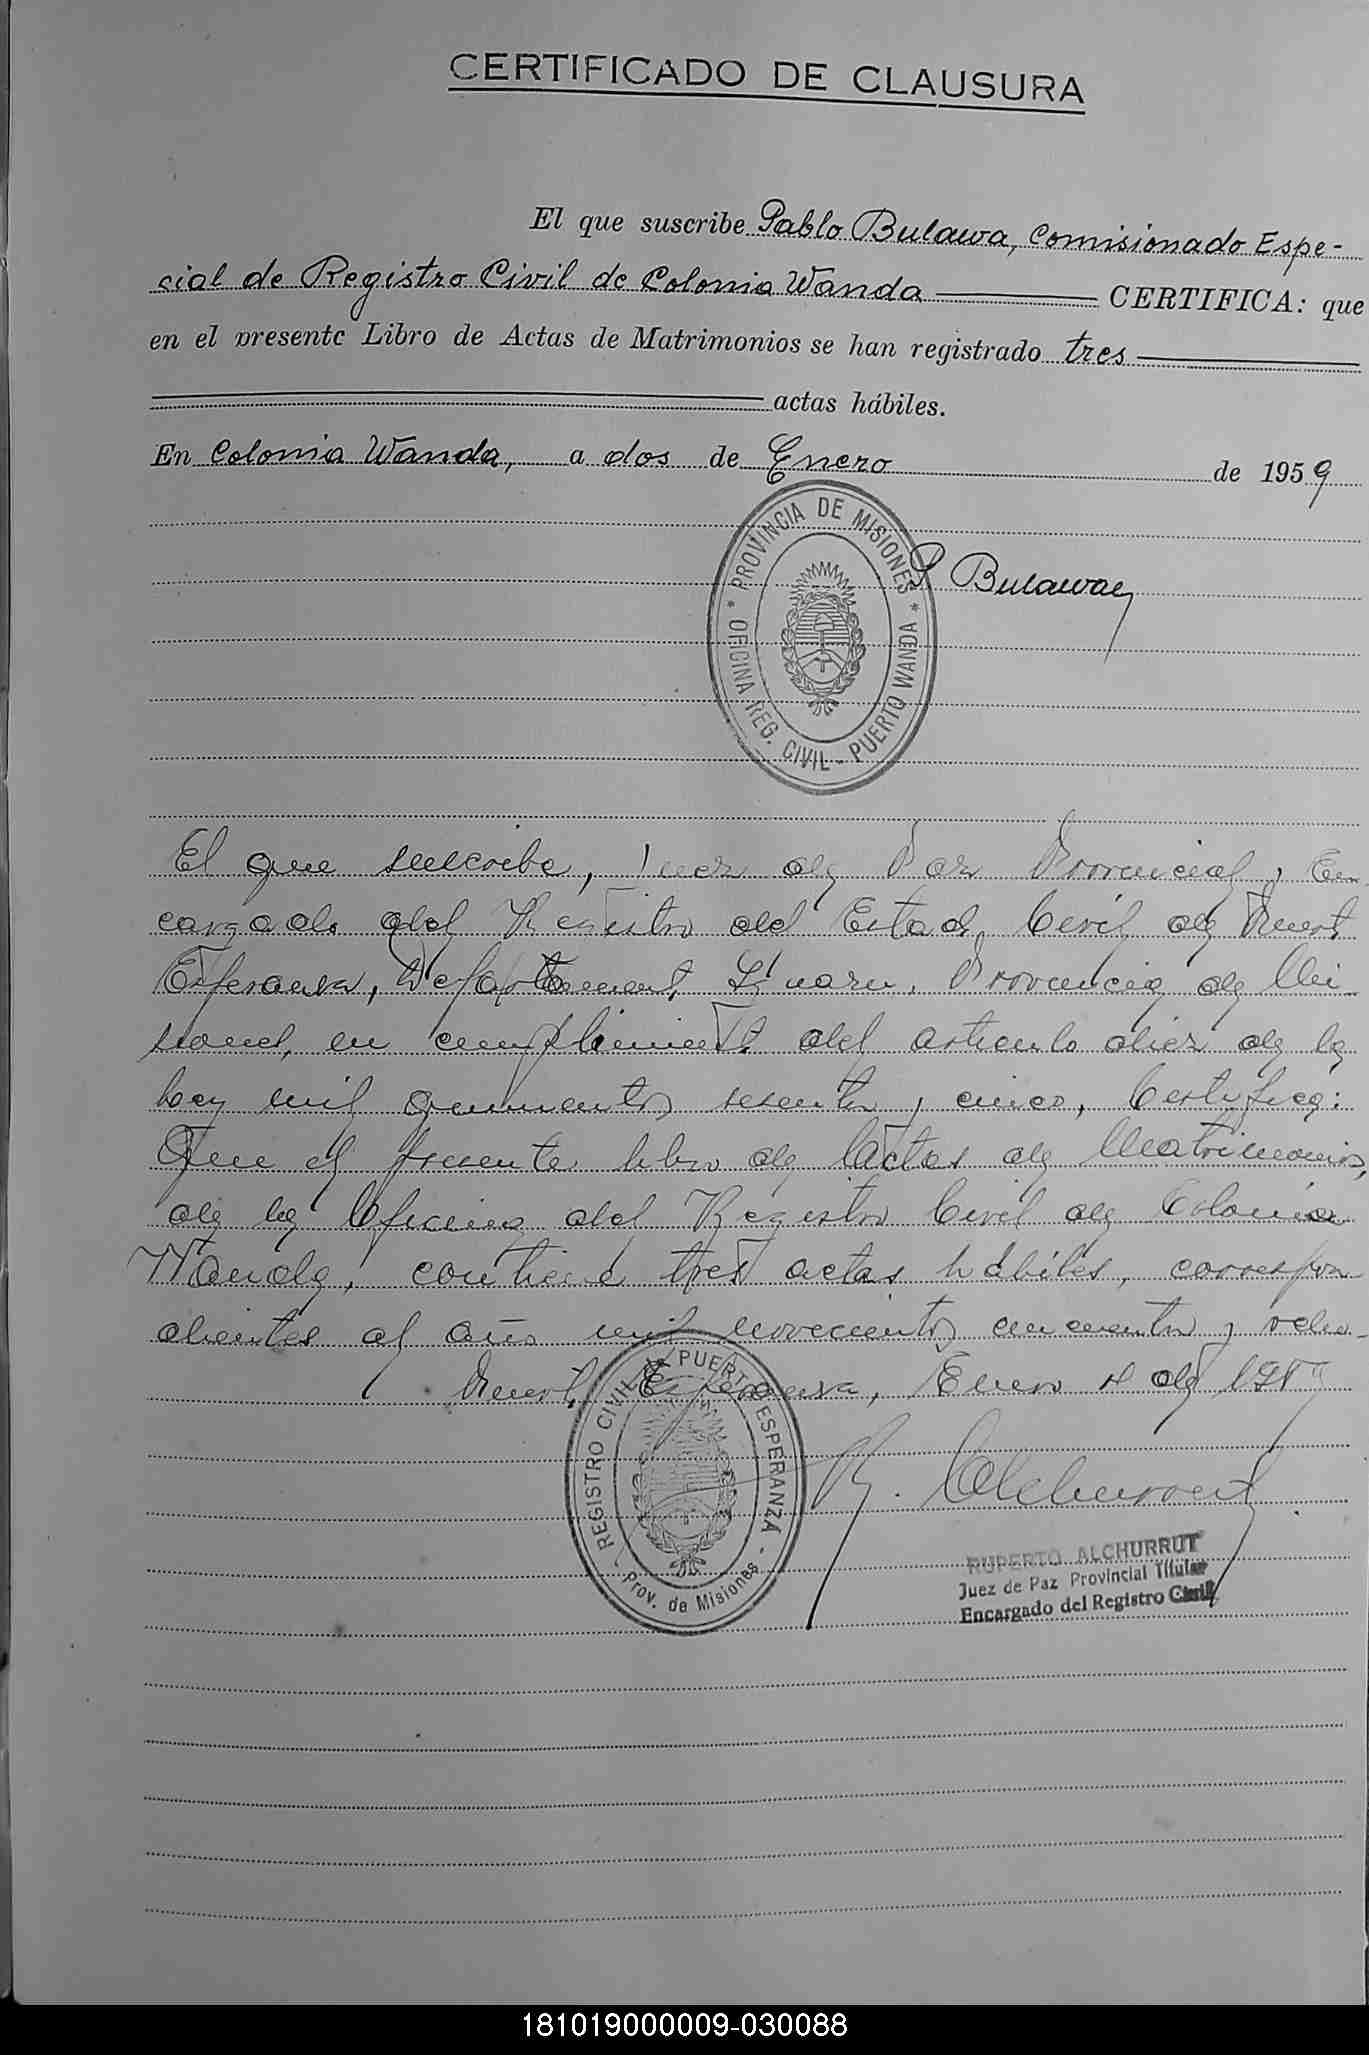 CERTIFICADO DE CLAUSURA
El que suscribe Pablo Bulawa, Comisionado Espe-
cial de Registro Civil de Colonia Wanda CERTIFICA: que
en el presente Libro de Actas de Matrimonios se han registrado tres
actas hábiles.
En Colonia Wanda, a dos de Enero de 1959
PROVINCIA DE MISIONES
* OFICINA REG. CIVIL - PUERTO WANDA *
P. Bulawa
El que suscribe, Juez de Paz Provincial, En-
cargado del Registro del Estado Civil de Puerto
Esperanza, Departamento Iguazu, Provincia de Mi-
siones, en cumplimiento del artículo diez de la
Ley mil quinientos sesenta y cinco, Certifica:
Que el presente libro de Actas de Matrimonios,
de la Oficina del Registro Civil de Colonia
Wanda, contiene tres actas hábiles, correspon-
dientes al año mil novecientos cincuenta y ocho.-
Puerto Esperanza, Enero de 1959
REGISTRO CIVIL DE PUERTO ESPERANZA
- Prov. de Misiones -
R. Alchurrut
RUPERTO ALCHURRUT
Juez de Paz Provincial Titular
Encargado del Registro Civil
181019000009-030088